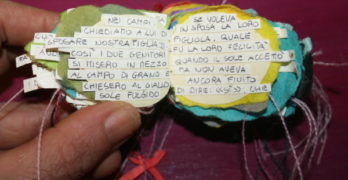 NEI CAMPI
CHIEDIAMO A LUI DI
SPOSARE NOSTRA FIGLIA"
COSÌ I DUE GENITORI
SI MISERO IN MEZZO
AL CAMPO DI GRANO E
CHIESERO AL GIALLO
SOLE FULGIDO
SE VOLEVA
IN SPOSA LA LORO
FIGLIOLA, QUALE
FU LA LORO FELICITA'
QUANDO IL SOLE ACCETTÒ
MA NON AVEVA
ANCORA FINITO
DI DIRE: